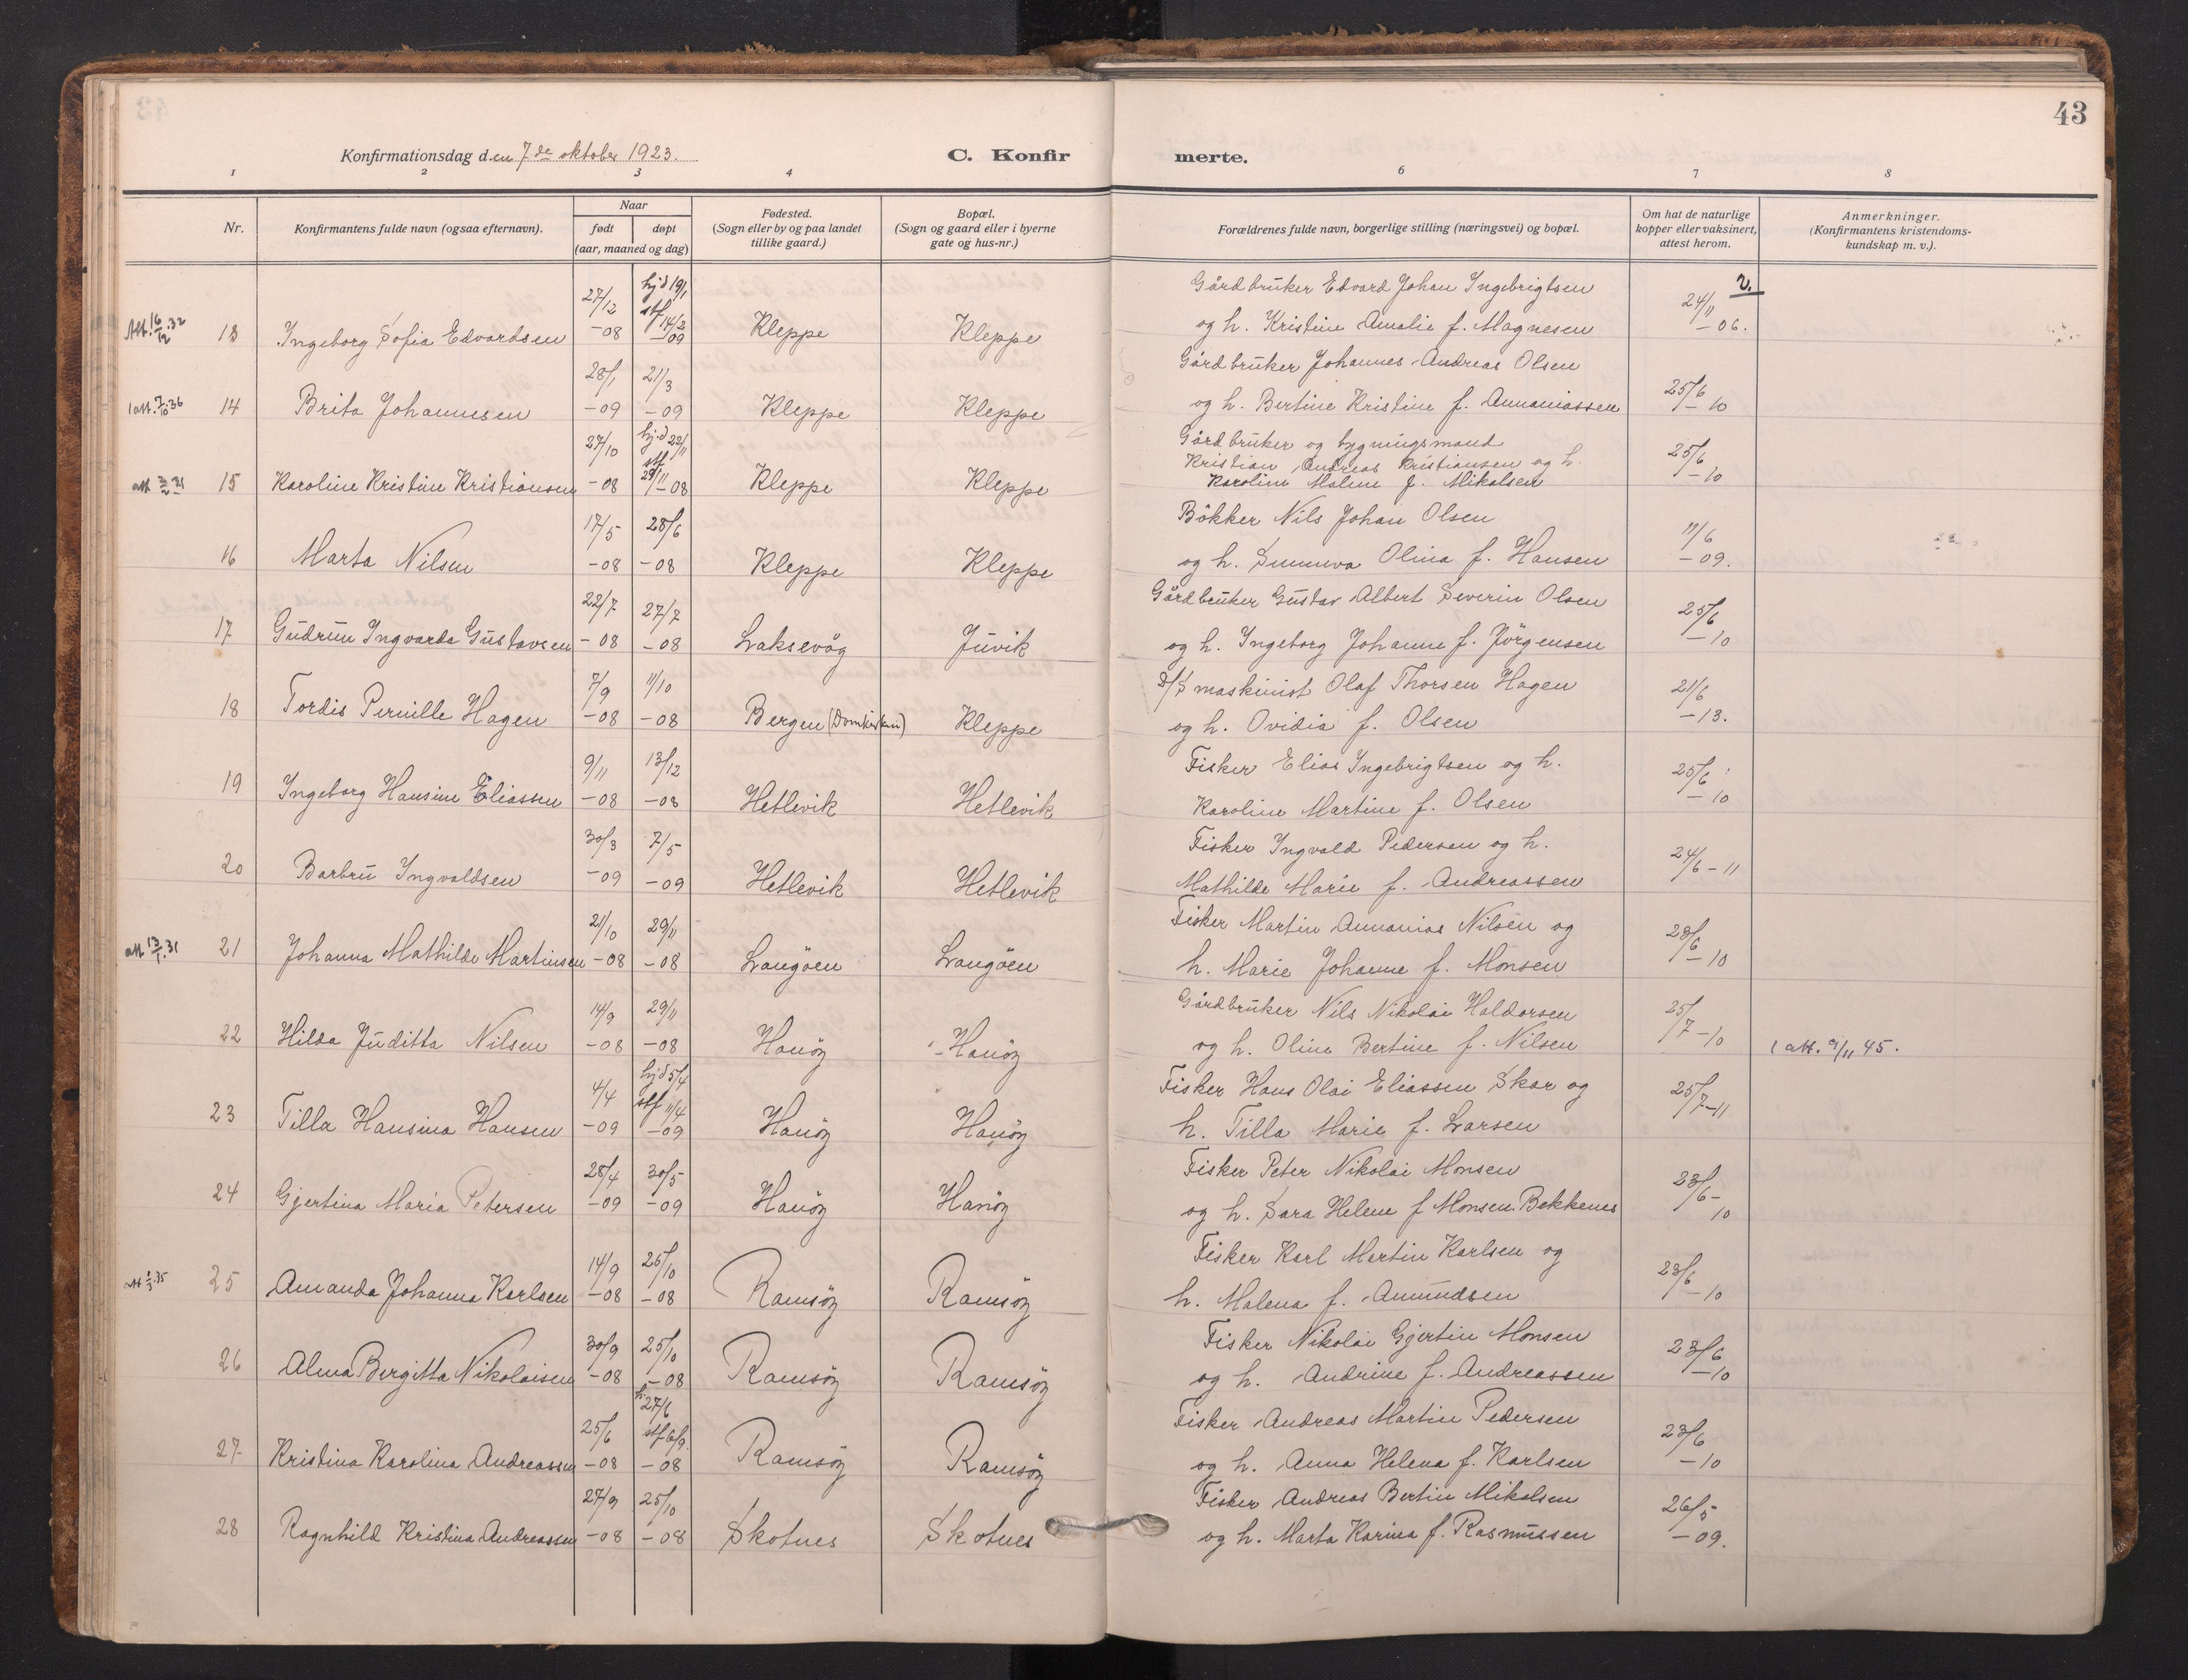 43
Konfirmationsdag den 7de oktober 1923. C. Konfirmerte.
1 2 3 4 6 7 8
Nr. Konfirmantens fulde navn (ogsaa efternavn). Naar født døpt (aar, maaned og dag) Fødested. (Sogn eller by og paa landet tillike gaard.) Bopæl. (Sogn og gaard eller i byerne gate og hus-nr.) Forældrenes fulde navn, borgerlige stilling (næringsvei) og bopæl. Om hat de naturlige kopper eller vaksinert, attest herom. Anmerkninger. (Konfirmantens kristendomskundskap m. v.).
Att. 16/12.32 13 Ingeborg Sofia Edvardsen 27/12 -08 hj.d 19/1 stf 14/2 -09 Kleppe Kleppe Gårdbruker Edvard Johan Ingebrigtsen og h. Kristine Amalie f. Magnesen 24/11 -06. v.
1 att. 7/10.36 14 Brita Johannesen 28/1 -09 21/3 -09 Kleppe Kleppe Gårdbruker Johannes Andreas Olsen og h. Bertine Kristine f. Annaniassen 25/6 -10
att 3/2 31 15 Karoline Kristine Kristiansen 27/10 -08 hj.d 22/11 stf 29/11 -08 Kleppe Kleppe Gårdbruker og bygningsmand Kristian Andreas Kristiansen og h. Karoline Malene f. Mikalsen 25/6 -10
16 Marta Nilsen 17/5 -08 28/6 -08 Kleppe Kleppe Bökker Nils Johan Olsen og h. Sunneva Olina f. Hansen 11/6 -09.
17 Gudrun Ingvarda Gustavsen 22/7 -08 27/7 -08 Laksevåg Juvik Gårdbruker Gustav Albert Severin Olsen og h. Ingeborg Johanne f. Jörgensen 25/6 -10
18 Tordis Pernille Hagen 7/9 -08 11/10 -08 Bergen (Domkirken) Kleppe D/S maskinist Olaf Thorsen Hagen og h. Ovidia f. Olsen 21/6 -13.
19 Ingeborg Hansine Eliassen 9/11 -08 13/12 -08 Hetlevik Hetlevik Fisker Elias Ingebrigtsen og h. Karoline Martine f. Olsen 25/6 -10
20 Barbru Ingvaldsen 30/3 -09 7/5 -09 Hetlevik Hetlevik Fisker Ingvald Pedersen og h. Mathilde Marie f. Andreassen 24/6-11
att 13/1.31 21 Johanna Mathilde Martinsen 21/10 -08 29/11 -08 Langöen Langöen Fisker Martin Annanias Nilsen og h. Marie Johanne f. Monsen 23/6 -10
22 Hilda Juditta Nilsen 14/9 -08 29/11 -08 Hanöy Hanöy Gårdbruker Nils Nikolai Haldorsen og h. Oline Bertine f. Nilsen 25/7-10 1 att. 9/11 45.
23 Tilla Hansina Hansen 4/4 -09 hj.d 5/4 stf 11/4 -09 Hanöy Hanöy Fisker Hans Olai Eliassen Skar og h. Tilla Marie f. Larsen 25/7-11
24 Gjertina Maria Petersen 28/4 -09 30/5 -09 Hanöy Hanöy Fisker Peter Nikolai Monsen og h. Sara Helene f Monsen Bekkenes 23/6-10
att 1/3.35 25 Amanda Johanna Karlsen 14/9 -08 25/10 -08 Ramsöy Ramsöy Fisker Karl Martin Karlsen og h. Malena f. Amundsen 23/6 -10
26 Alma Bergitta Nikolaisen 30/9 -08 25/10 -08 Ramsöy Ramsöy Fisker Nikolai Gjertin Monsen og h. Andrine f. Andreassen 23/6 -10
27 Kristina Karolina Andreassen 25/6 -08 h. 27/6 stf 6/9. -08 Ramsöy Ramsöy Fisker Andreas Martin Pedersen og h. Anna Helena f. Karlsen 23/6 -10
28 Ragnhild Kristina Andreassen 27/9 -08 25/10 -08 Skotnes Skotnes Fisker Andreas Bertin Mikalsen og h. Marta Karina f. Rasmussen 26/5 -09.